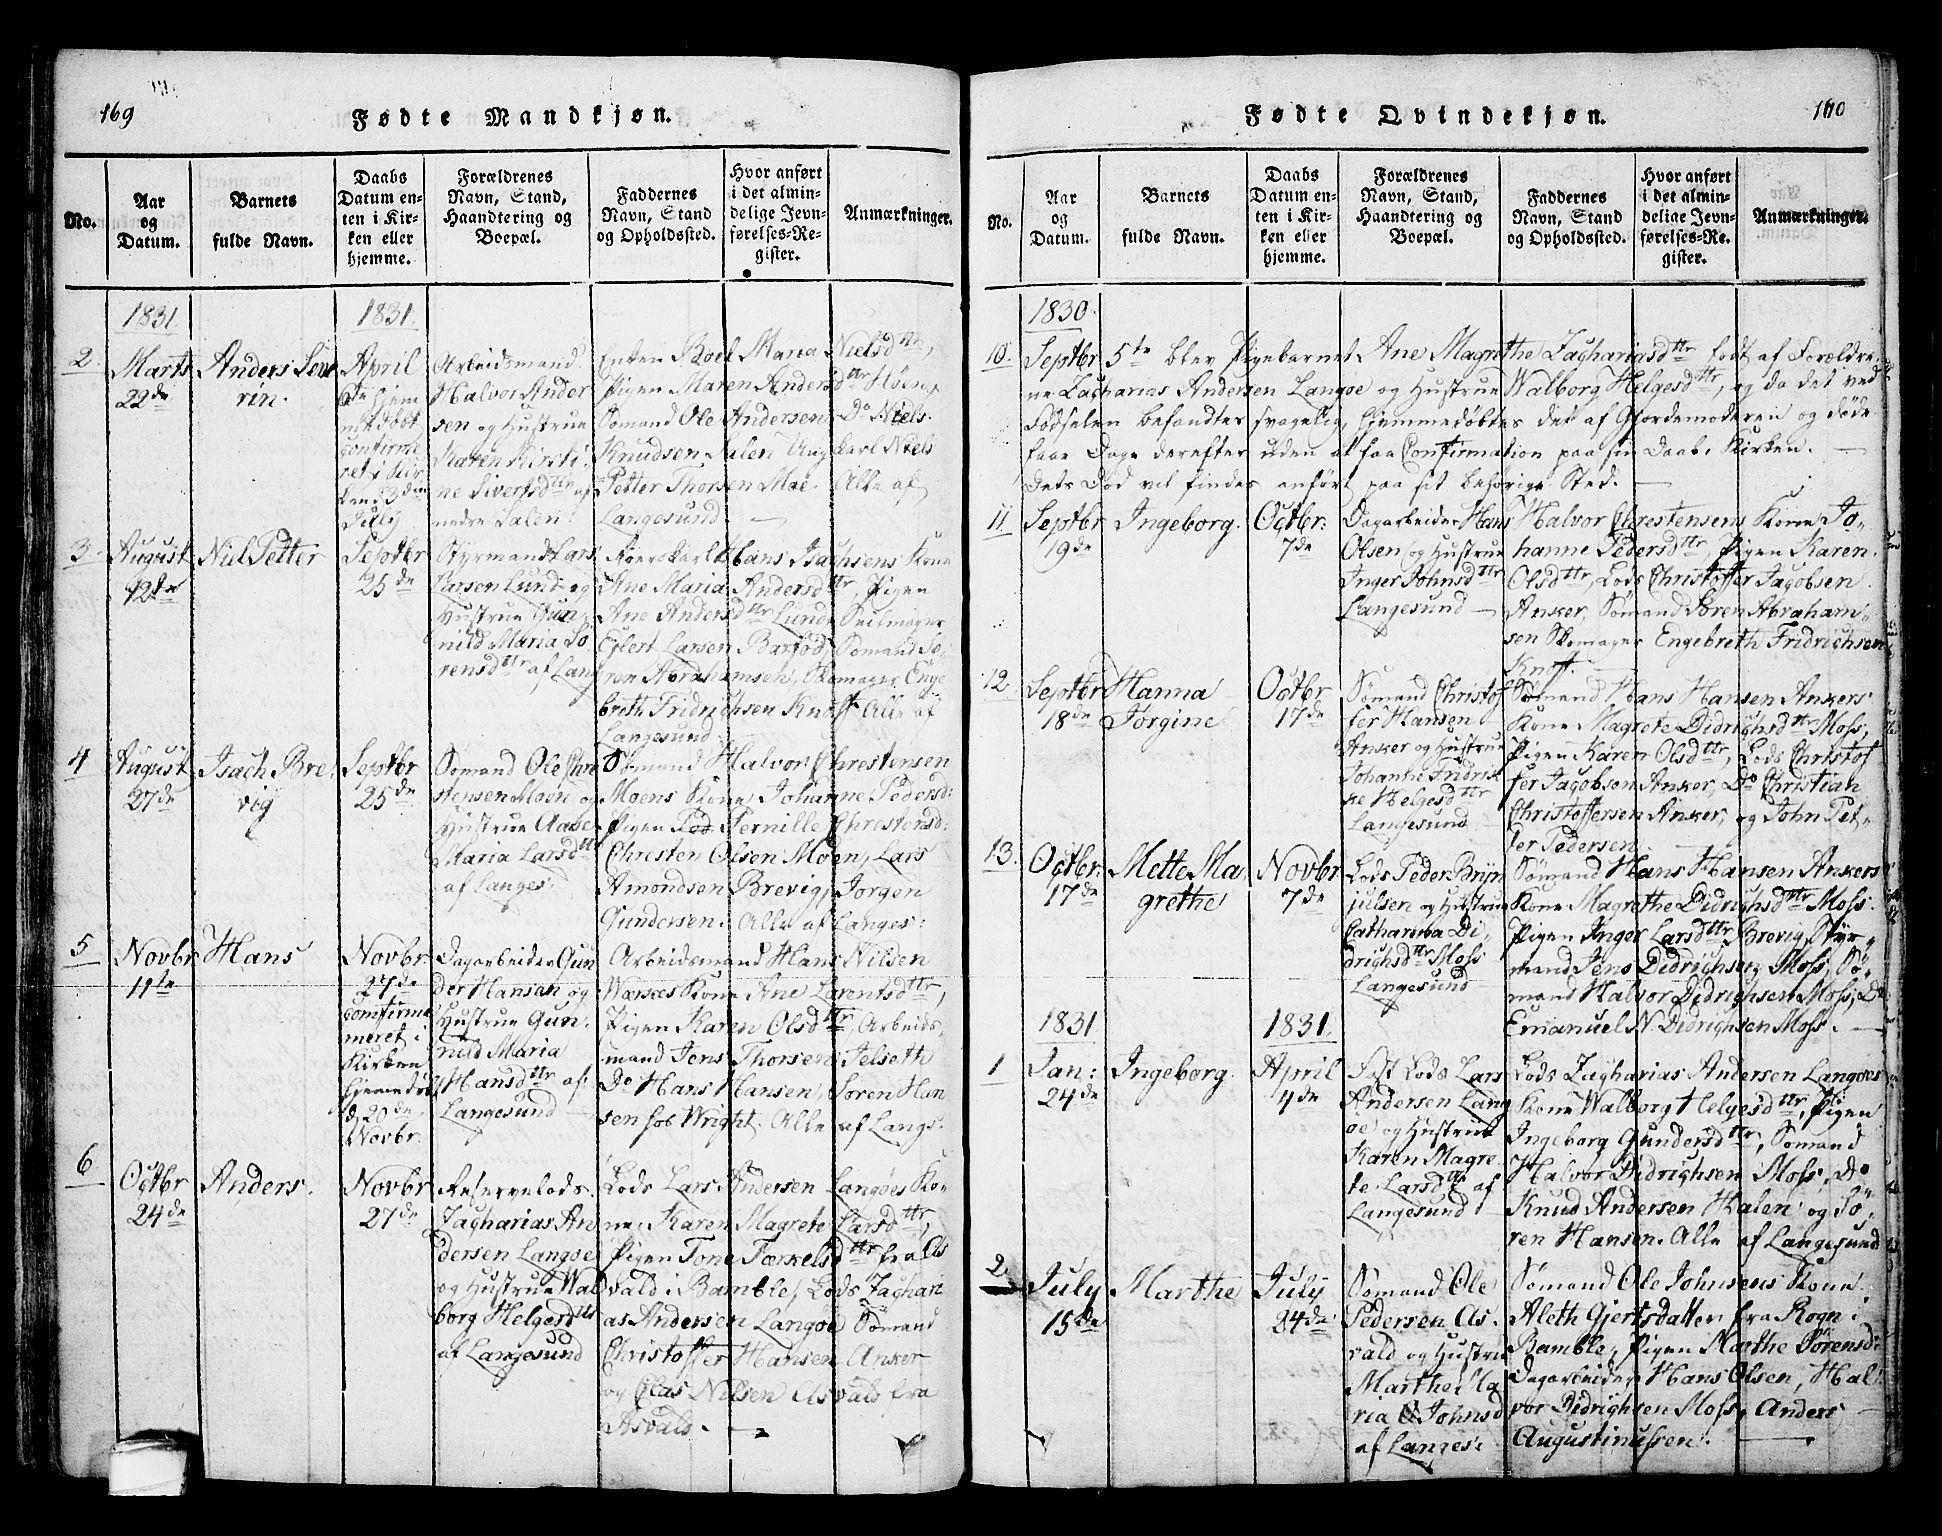 169
Fødte Mandkjøn.
No.
Aar
og
Datum.
Barnets
fulde Navn.
Daabs
Datum en-
ten i Kir-
ken eller
hjemme.
Forældrenes
Navn, Stand,
Haandtering og
Boepæl.
Faddernes
Navn, Stand
og Opholdssted.
Hvor anført
i det almin-
delige Jevn-
førelses-Re-
gister.
Anmærkninger.
1831
1831.
2.
Marts
22de
Anders Sev
rin.
April
6de hjem
medøbt
confirme
ret i Kir
ken 3die
July
Arbeidsmand
Halvor Ander
sen og Hustrue
Karen Kirsti
ne Sivertsdttr af
nedre Salen.
Enken Boel Maria Nielsdttr,
Pigen Maren Andersdttr Høen,
Sømand Ole Andersen Do Niels
Knudsen Salen Ungkarl Niels
Petter Thorsen Moe Alle af
Langesund —
3.
August
12de
Niel Petter
Septbr
25de
Styrmand Lars
Larsen Lund og
Hustrue Gun,
nild Maria So
rensdttr af Lang
Hans Isachsens Kone
Ane Maria Andersdttr, Pigen
Ane Andersdttr Lunde, Seilmager
Eilert Larsen Barfod, Sømand So,
ren Abrahamsen, Skomager Enge
breth Fridrichsen Knoff Alle af
Langesund
4
August
27de
Isach Bre,
vig
Septbr
25de
Sømand Ole Chre
stensen Moen og
Hustrue Aase
Maria Larsdttr
af Langes:
Sømand Halvor Chrestensen
Moens Kone Johanne Pedersd:
Pigen Ped Pernille Chrestensd:
Chresten Olsen Moen, Lars
Amondsen Brevig, Jorgen
Gundersen. Alle af Langes:
5
Novbr
11te
Hans
Novbr
27de
Confirme
meret i
Kirken
hjemmedøbt
d. 20de
Novbr.
Dagarbeider Gun
der Hansen og
Hustrue Gun.
nild Maria
Hansdttr af
Langesund
Arbeidsmand Hans Nilsen
Kone Ane Larentsdttr,
Pigen Karen Olsdttr, Arbeids,
mand Jens Thorsen Jelseth
Do Hans Hansen, Søren Han
sen hos Wright. Alle af Langs:
6.
Octbr
24de
Anders.
Novbr
27de
Reservelods
Zacharias An
dersen Langøe
og Hustrue Wal
borg Helgesdttr
af Langesund
Lods Lars Andersen Langøes Ko-
ne: Karen Magrete Larsdttr,
Pigen Tone Tærkelsdttr fra As
vald i Bamble, Lods Zachari
as Andersen Langøe Sømand
Christoffer Hansen Anker
og Clas Nilsen Asvald fra
Asvald. —
110
Fødte Qvindekjøn.
No.
Aar
og
Datum.
Barnets
fulde Navn.
Daabs
Datum en-
ten i Kir-
ken eller
hjemme.
Forældrenes
Navn, Stand,
Haandtering og
Boepæl.
Faddernes
Navn, Stand
og Opholdssted.
Hvor anført
i det almin-
delige Jevn-
førelses-Re-
gister.
Anmærkninger.
1830.
10.
Septbr 5te blev Pigebarnet Ane Magrethe Zachariasdttr født af Forældre,
ne Zacharias Andersen Langøe og Hustrue Walborg Helgesdttr, og da det ved
Fødselen befandtes svagelig, hjemmedøbtes det af Gjordemoderen og døde
faae Dage derefter uden at faa Confirmation paa sin Daab i Kirken. —
Dets Død vil findes anført paa sit behørige Sted. —
11
Septbr
19de
Ingeborg.
Octbr:
7de
Dagarbeider Hans
Olsen og Hustrue
Inger Johnsdttr
Langesund —
Halvor Chrestensens Kone Jo-
hanne Pedersdttr, Pigen Karen
Olsdttr, Lods Christoffer Jagobsen
Anker, Sømand Soren Abraham,
sen Skomager Engebreth Fridrichsen
Knoff. —
12
Septbr
18de
Hanna
Jorgine
Octbr
17de
Sømand Christof
fer Hansen
Anker og Hustrue
Johanne Fridrik
ke Helgesdttr
Langesund
Sømand Hans Hansen Ankers
Kone Magrete Didrichsdttr Moss,
Pigen Karen Olsdttr, Lods Christof
fer Jagobsen Anker, Do Christian
Christoffersen Anker, og John Pet-
ter Pedersen.
13.
Octbr.
17de
Mette Ma,
grethe
Novbr
7de
Lods Peder Bryn
julsen og Hustrue
Catharina Di,
drichsdttr Moss
Langesund
Sømand Hans Hansen Ankers
Kone Magrethe Didrichsdttr Moss.
Pigen Inger Larsdttr Brevig, Styr-
mand Jens Didrichsen Moss, Sø-
mand Halvor Didrichsen Moss, Do
Emanuel N. Didrichsen Moss. —
1831
1831.
1
Jan:
24de
Ingeborg.
April
4de
Fast Lods Lars
Andersen Lang
øe og Hustrue
Karen Magre
te Larsdttr af
Langesund
Lods Zacharias Andersen Langøes
Kone Walborg Helgesdttr, Pigen
Ingeborg Gundersdttr, Sømand
Halvor Didrichsen Moss, Do
Knud Andersen Halen og Sö,
ren Hansen. Alle af Langesund
2.
July
15de
Marthe
July
24de
Sømand Ole
Pedersen As.
vald og Hustrue
Marthe Ma
ria Johnsd
af Langes:
Sømand Ole Johnsens Kone
Aleth Gjertsdatter fra Rogn i
Bamble, Pigen Marthe Sørensd:
Dagarbeider Hans Olsen, Hal
vor Didrichsen Moss, Anders
Augustinussen. —